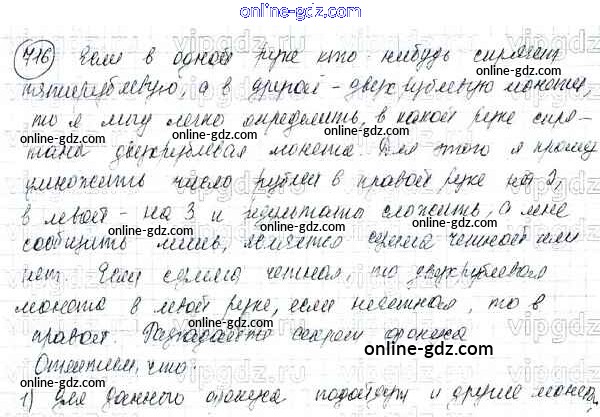 online-gdz.com
716 Если в одной руке кто-нибудь спрячет
пятирублевую, а в другой - двухрублевую монеты,
то я могу легко определить, в какой руке спря-
тана двухрублевая монета. Для этого я прошу
умножить число рублей в правой руке на 2,
в левой - на 3 и результаты сложить, а мне
сообщить лишь, является сумма четной или
нет. Если сумма четная, то двухрублевая
монета в левой руке, если нечетная, то в
правой. Разгадайте секрет фокуса
Отметим, что:
1) для данного фокуса подойдут и другие монеты,